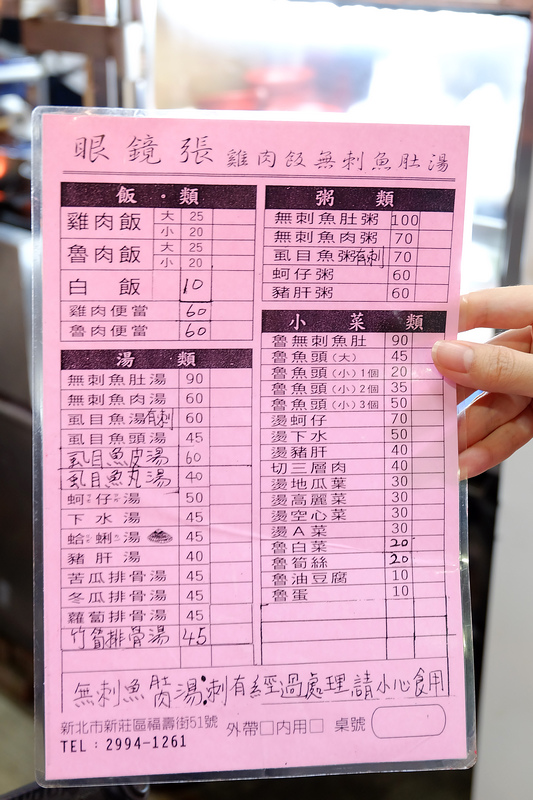 眼鏡張 雞肉飯無刺魚肚湯
飯．類
雞肉飯 大 25
小 20
魯肉飯 大 25
小 20
白飯 10
雞肉便當 60
魯肉便當 60
湯類
無刺魚肚湯 90
無刺魚肉湯 60
虱目魚湯有刺 60
虱目魚頭湯 45
虱目魚皮湯 60
虱目魚丸湯 40
蚵仔湯 50
下水湯 45
蛤蜊湯 45
豬肝湯 40
苦瓜排骨湯 45
冬瓜排骨湯 45
蘿蔔排骨湯 45
竹筍排骨湯 45
粥類
無刺魚肚粥 100
無刺魚肉粥 70
虱目魚粥有刺 70
蚵仔粥 60
豬肝粥 60
小菜類
魯無刺魚肚 90
魯魚頭(大) 45
魯魚頭(小)1個 20
魯魚頭(小)2個 35
魯魚頭(小)3個 50
燙蚵仔 70
燙下水 50
燙豬肝 40
切三層肉 40
燙地瓜葉 30
燙高麗菜 30
燙空心菜 30
燙A菜 30
魯白菜 20
魯筍絲 20
魯油豆腐 10
魯蛋 10
無刺魚肚肉湯：刺有經過處理請小心食用
新北市新莊區福壽街51號 外帶□內用□ 桌號
TEL：2994-1261